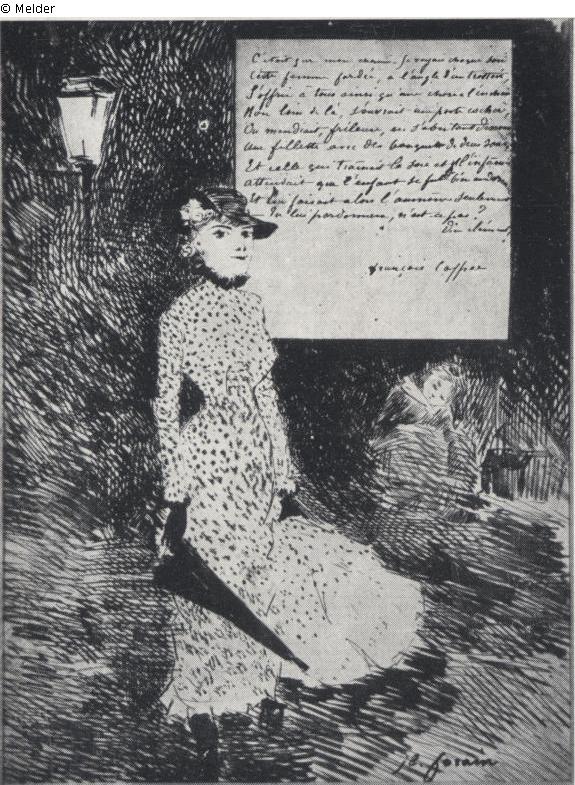 © Melder
C'était sur mon chemin. Je voyais chaque soir
Cette femme fardée, à l'angle d'un trottoir,
S'offrir à tous ainsi qu'une chose à l'enchère
Non loin de là s'ouvrait une porte cochère
Où mendiait, frileuse, en s'abritant
Une fillette avec des bouquets de deux sous.
Et celle qui traînait la soie et l'infamie
Attendait que l'enfant se fût bien endormie
Et lui faisait alors l'aumône seulement
Tu lui pardonneras, n'est-ce pas ?
Dieu clément,
François Coppée
JL. forain